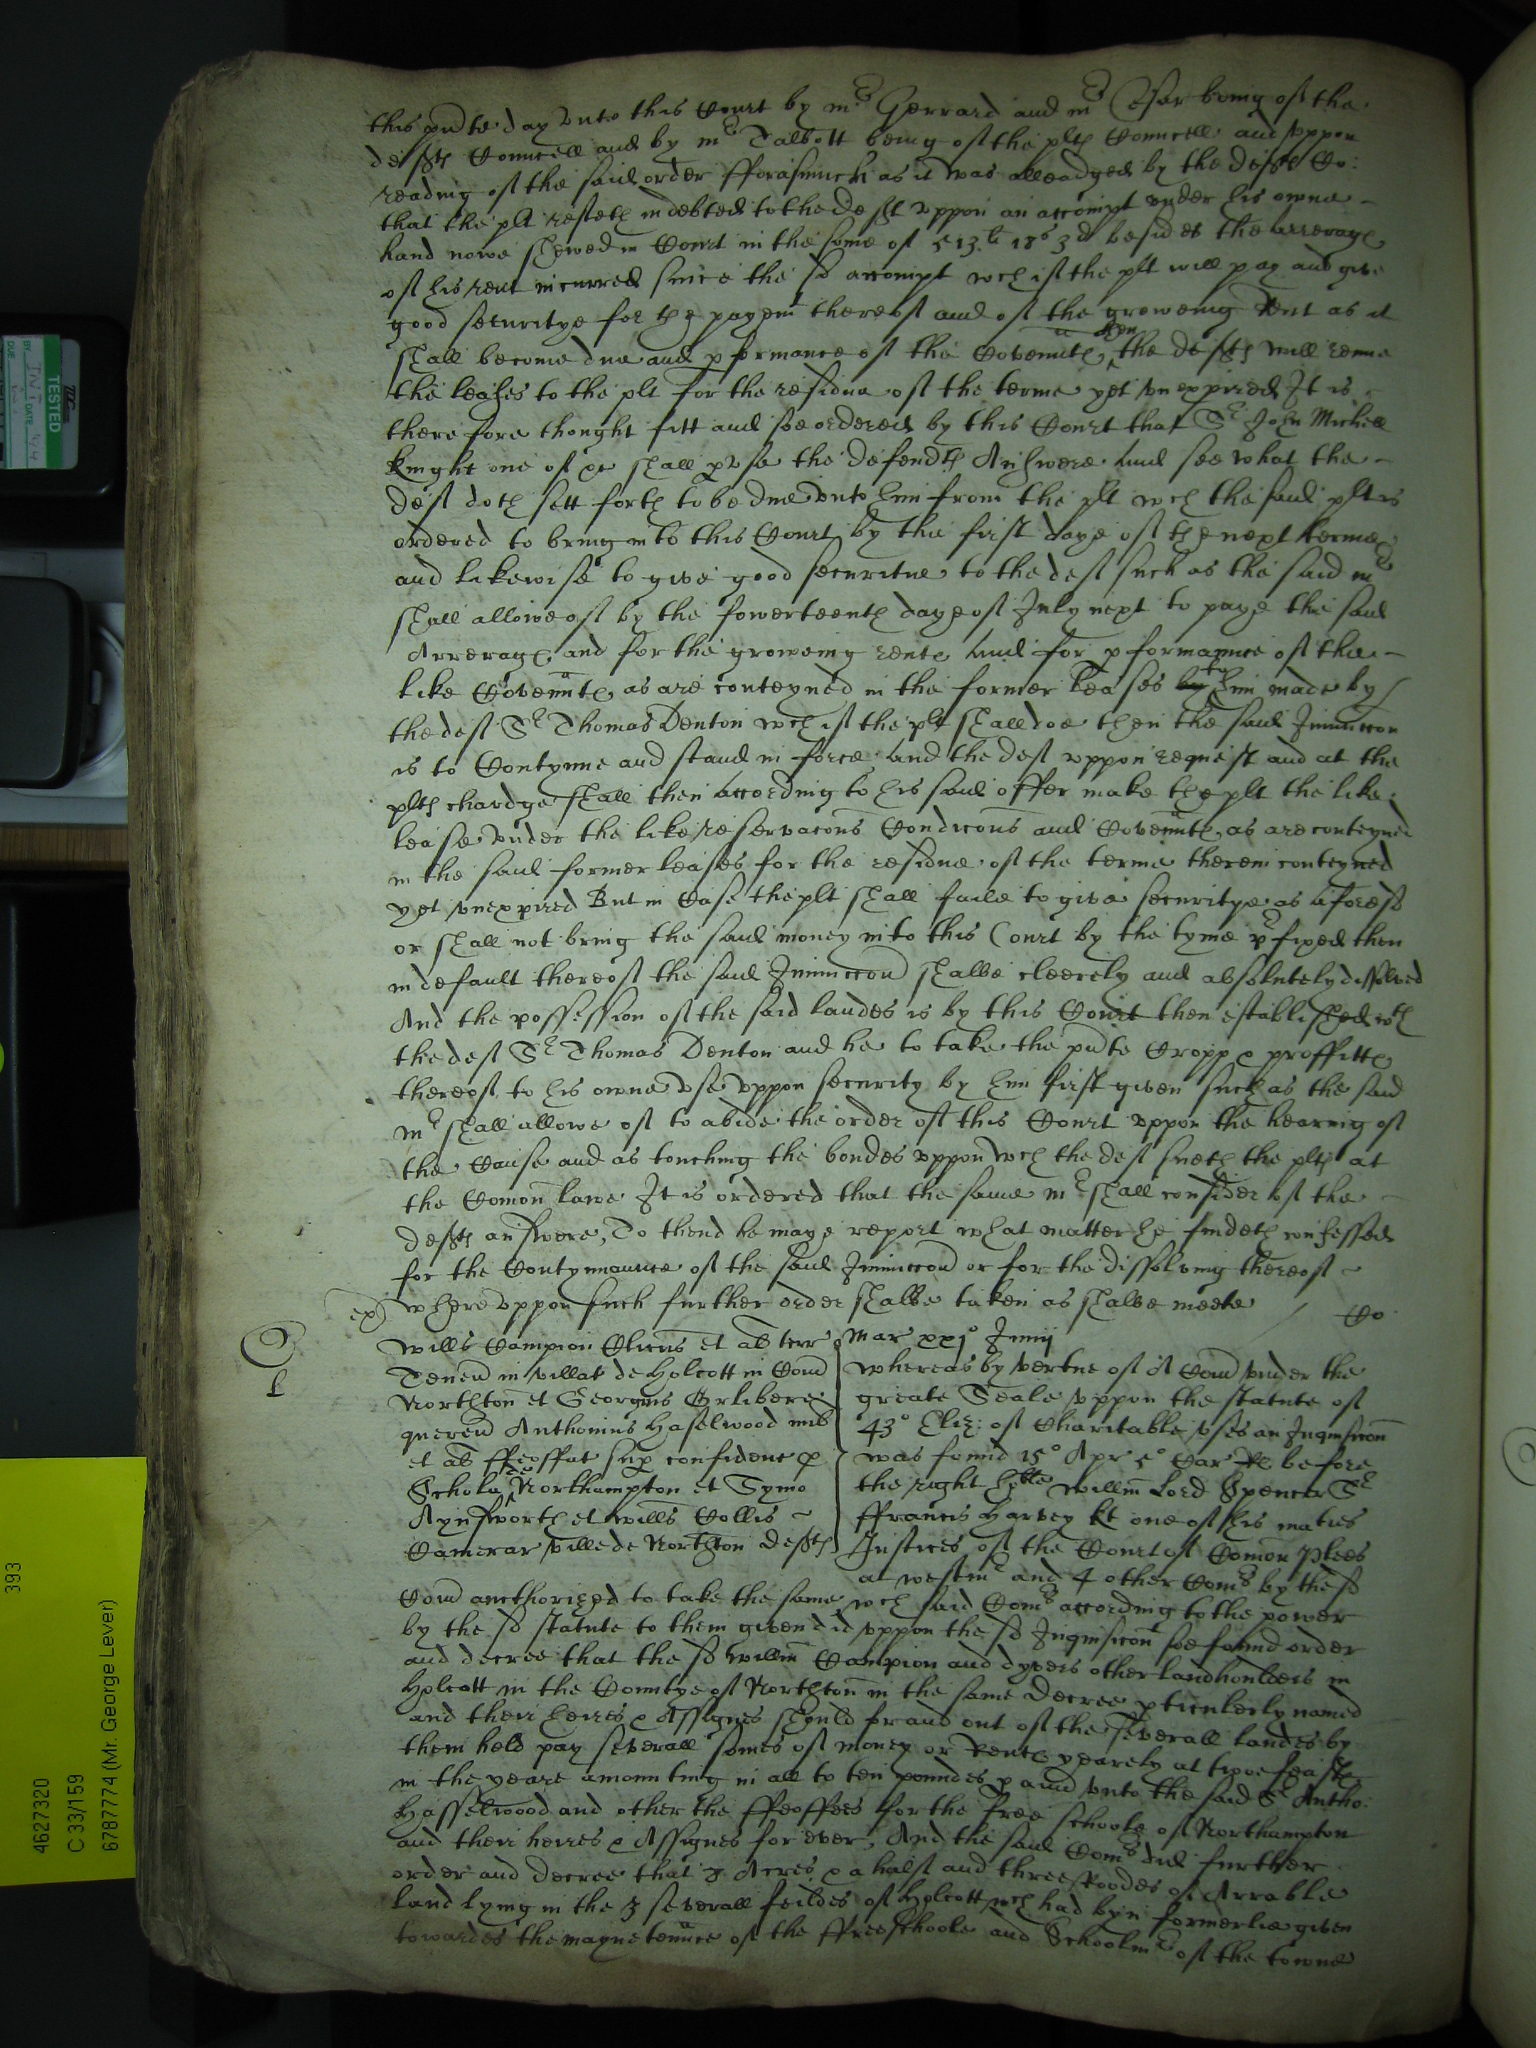 this pnte day unto this Court by mr Gerrard and mr Cesar being of the
deftes Councell and by mr Talbott being of the pltes Councell and uppon
reading of the said order fforasmuch as it was alleadged by the deftes Co:
that the plt resteth indebted to the deft uppon an accompt under his owne
hand nowe shewed in Court in the some of 513li 18s 3d besides the arrerages
of his rent incurred since the sd accompt wch if the plt will pay and give
good securitye for the paymt thereof and of the groweing Rent as it
shall become due and pformance of the Covennts then the deftes will renue
the leases to the plt for the residue of the terme yet unexpired It is
therefore thought fitt and soe ordered by this Court that Sr John Michell
knight one of &c shall pvse the defendts Answere and see what the
deft doth sett forth to be due unto him from the plt wch the said plt is
ordered to bring into this Court by the first daye of the next terme
and likewise to give good securitie to the deft such as the said mr
shall allowe of by the fowerteenth daye of July next to paye the said
Arrerages and for the groweing rente And for pformannce of the
like Covennts as are conteyned in the former leases by to him made by
the deft Sr Thomas Denton wch if the plt shall doe then the said Iniunccon
is to Contynue and stand in force And the deft uppon request and at the
pltes chardge shall then according to his said offer make the plt the like
lease under the like reservacons Condicons and Covennts as are conteyned
in the said former leases for the residue of the terme therein conteyned
yet unexpired But in Case the plt shall faile to give securitye as aforesd
or shall not bring the said money into this Court by the tyme pfixed then
in default thereof the said Iniunccon shalbe cleerely and absolutely dissolved
And the possession of the said landes is by this Court then established wth
the deft Sr Thomas Denton and he to take the pnte Cropp & proffitts
thereof to his owne use uppon security by him first given such as the said
mr shall allowe of to abide the order of this Court uppon the hearing of
the Cause and as touching the bondes uppon wch the deft sueth the plts at
the Comon lawe It is ordered that the same mr shall consider of the
deftes answere, To thend he maye report what matter he findeth confessed
for the Contynuance of the said Iniunccon or for the dissolving thereof
whereuppon such further order shalbe taken as shalbe meete
Co
ex
Willus Campion Clicus et al terr
Tenen in villat de Holcott in Com
Northton et Georgius
queren Anthonius Haselwood mil
et al ffeoffat sup confident p
Schola de Northampton et Symo
Aynsworth et Willus Collis
Camerar ville de Northton Deftes
Mar xxjo Junij
Whereas by vertue of A Com under the
greate Seale uppon the statute of
43o Eliz: of Charitable uses an Inquisicon
was found 15o Apr 5o Car Rs before
the right hoble Willm Lord Spencer Sr
ffrancis Harvey kt one of his maties
Justices of the Court of Comon Plees
at westmr and 4 other Comrs by the sd
Com aucthorized to take the same, wch said Comrs according to the power
by the sd statute to them given did uppon the sd Inquisicon soe found order
and decree that the sd Willm Campion and dyvers other landhoulders in
Holcott in the Countye of Northton in the same Decree pticulerly named
and their heires & Assignes should for and out of the severall landes by
them held pay severall somes of money or Rents yearely at twoe feasts
in the yeare amounting in all to ten poundes p ann unto the said Sr Antho:
Hasselwood and other the ffeoffees for the free schoole of Northampton
and their heires & Assignes for ever, And the said Comrs did further
order and decree that 3 Acres & a halfe and three Roodes of Arrable
land lying in the 3 severall feildes of Holcott wch had byn formerlie given
towardes the maynetennce of the ffreeschoole and Schoolmr of the towne
TESTED
BY
DATE
DUE
393
4627320
C 33/159
6787774 (Mr. George Lever)